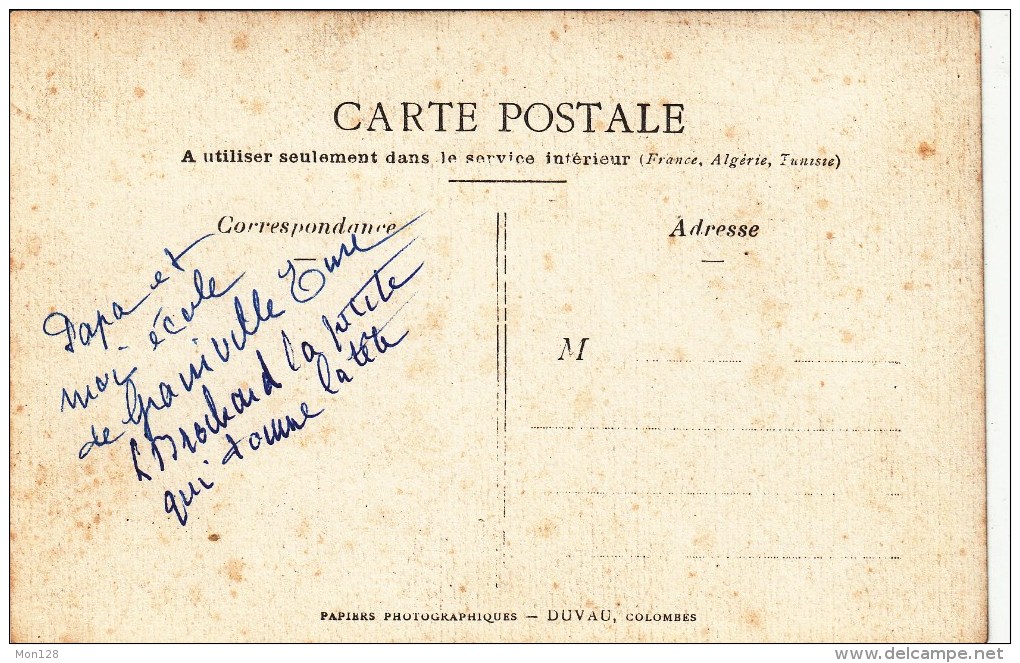 CARTE POSTALE
A utiliser seulement dans le service intérieur (France, Algérie, Tunisie)
Correspondance
Papa et
moi école
de Graniville Eure
Brochard la petite
qui tourne la tête
Adresse
M
PAPIERS PHOTOGRAPHIQUES — DUVAU, COLOMBES
Mon128
delcampe.net